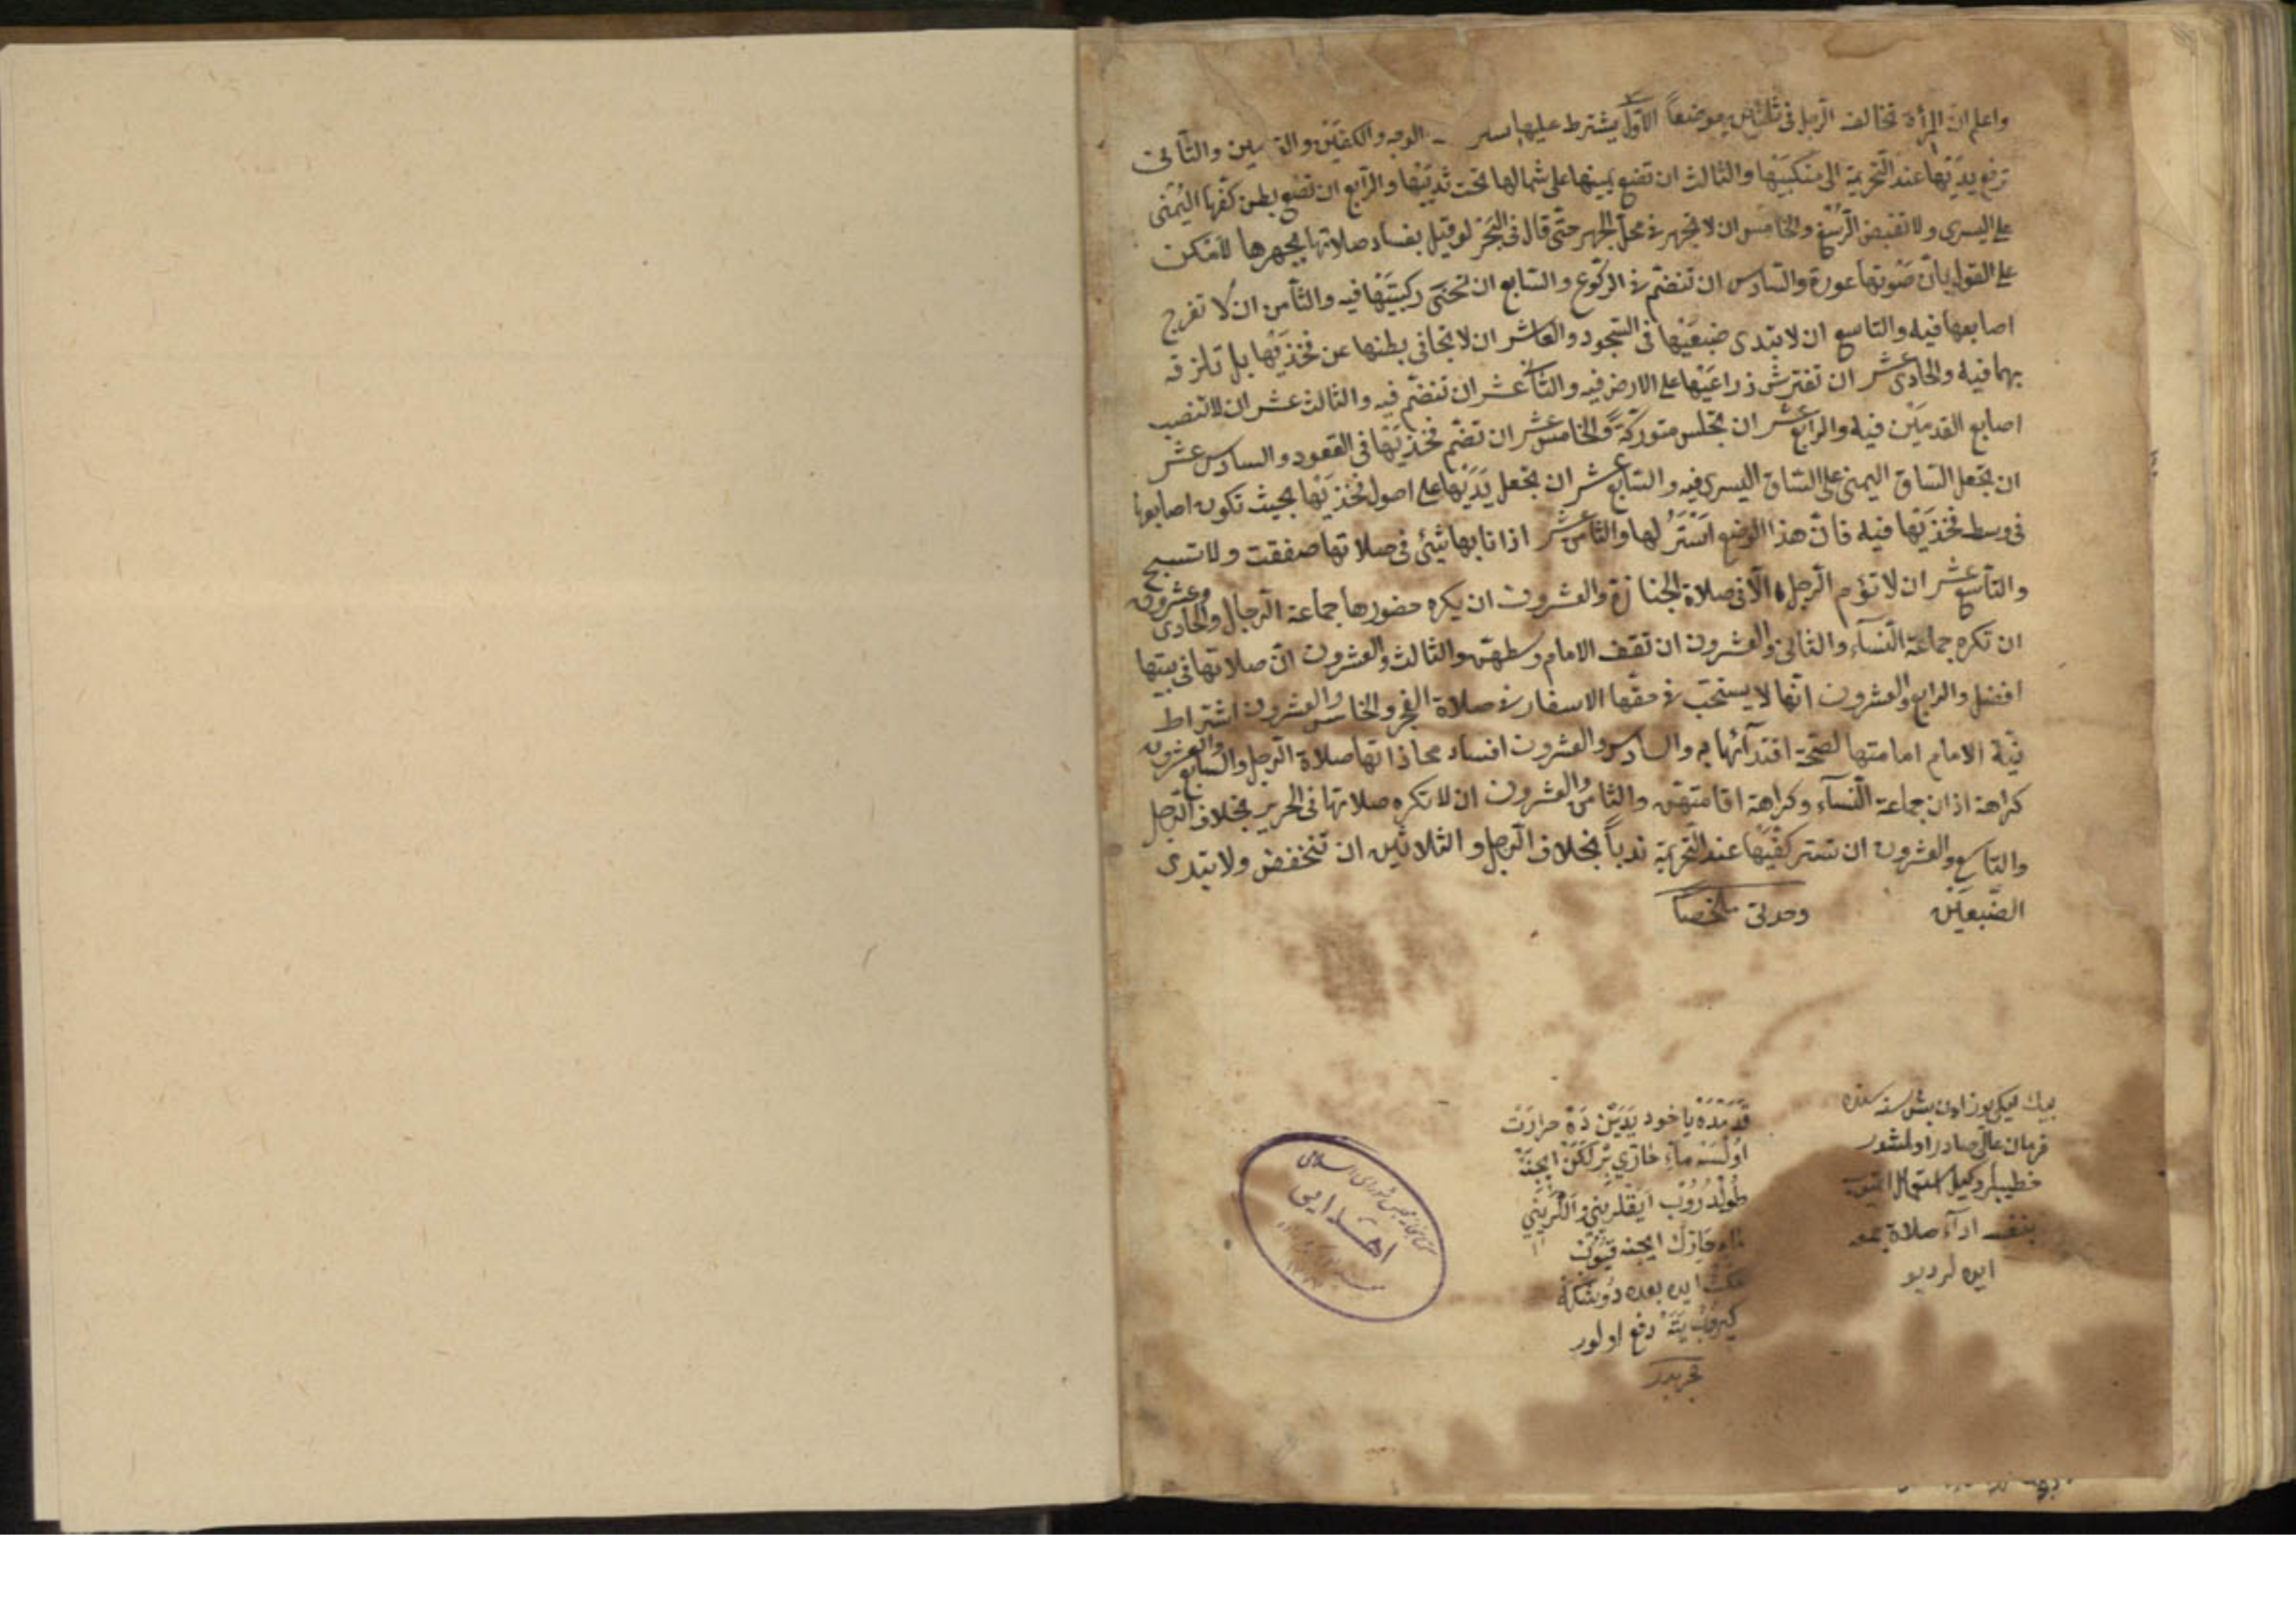 واعلم ان المرأة تخالف الرجل فى ثلثين موضعاً الاوّل يشترط عليها الوجه والكفّين والثانى
ترفع يديها عند التحريمة الى منكبيها والثالث ان تضع يمينها على شمالها تحت ثدييها والرّابع ان تضع بطن كفّها اليمنى
على اليسرى ولا تقبض الرّسغ والخامس ان لا تجهر فى محلّ الجهر حتّى قال فى البحر لو قيل بفساد صلاتها بجهرها لأمكن
على القول بانّ صوتها عورة والسّادس ان تنضمّ فى الركوع والسّابع ان تحنى ركبتيها فيه والثّامن ان لا تفرج
اصابعها فيه والتاسع ان لا تبدى ضبعيها فى السّجود والعاشر ان لا تجافى بطنها عن فخذيها بل تلزقه
بهما فيه والحادى عشر ان تفترش ذراعيها على الارض فيه والثّانى عشر ان تنضمّ فيه والثالث عشر ان لا تنصب
اصابع القدمين فيه والرابع عشر ان تجلس متورّكة والخامس عشر ان تضمّ فخذيها فى القعود والسادس عشر
ان تجعل السّاق اليمنى على السّاق اليسرى فيه والسّابع عشر ان تجعل يديها على اصول فخذيها بحيث تكون اصابعها
فى وسط فخذيها فيه فانّ هذا الوضع استر لها والثّامن عشر اذا نابها شيئ فى صلاتها صفقت ولا تسبح
والتّاسع عشر ان لا تؤم الرجل الّا فى صلاة الجنازة والعشرون ان يكره حضورها جماعة الرّجال والحادى وعشرون
ان تكره جماعة النّساء والثانى والعشرون ان تقف الامام وسطهنّ والثالث والعشرون انّ صلاتها فى بيتها
افضل والرابع والعشرون انّها لا يستحبّ فى حقّها الاسفار فى صلاة الفجر والخامس والعشرون اشتراط
نيّة الامام امامتها لصحّة اقتدائها به والسادس والعشرون افساد محاذاتها صلاة الرّجل والسّابع والعشرون
كراهة اذان جماعة النّساء وكراهة اقامتهنّ والثامن والعشرون ان لا تكره صلاتها فى الحرير بخلاف الرّجل
والتاسع والعشرون ان تستر كفّيها عند التّحريمة ندباً بخلاف الرّجل والثلاثين ان تنخفض ولا تبدى
الضّبعين وحدتى ملخصاً
بيك ايكيوز اون بش سنه سنده
فرمان عالى صادر اولمشدر
خطيبلر وكيل استعمال
بنفسه اداء صلاة جمعه
ايده لر ديو
قدمده ياخود يدين ده حرارت
اولسه ماء ايچنه
طولدروب ايقلرينى و اللرينى
ايچنه قيوب
مكث ايده بعده دوشكه
كيروب يته دفع اولور
مجربدر
كتابخانه مجلس شوراى اسلامى
اهدائى